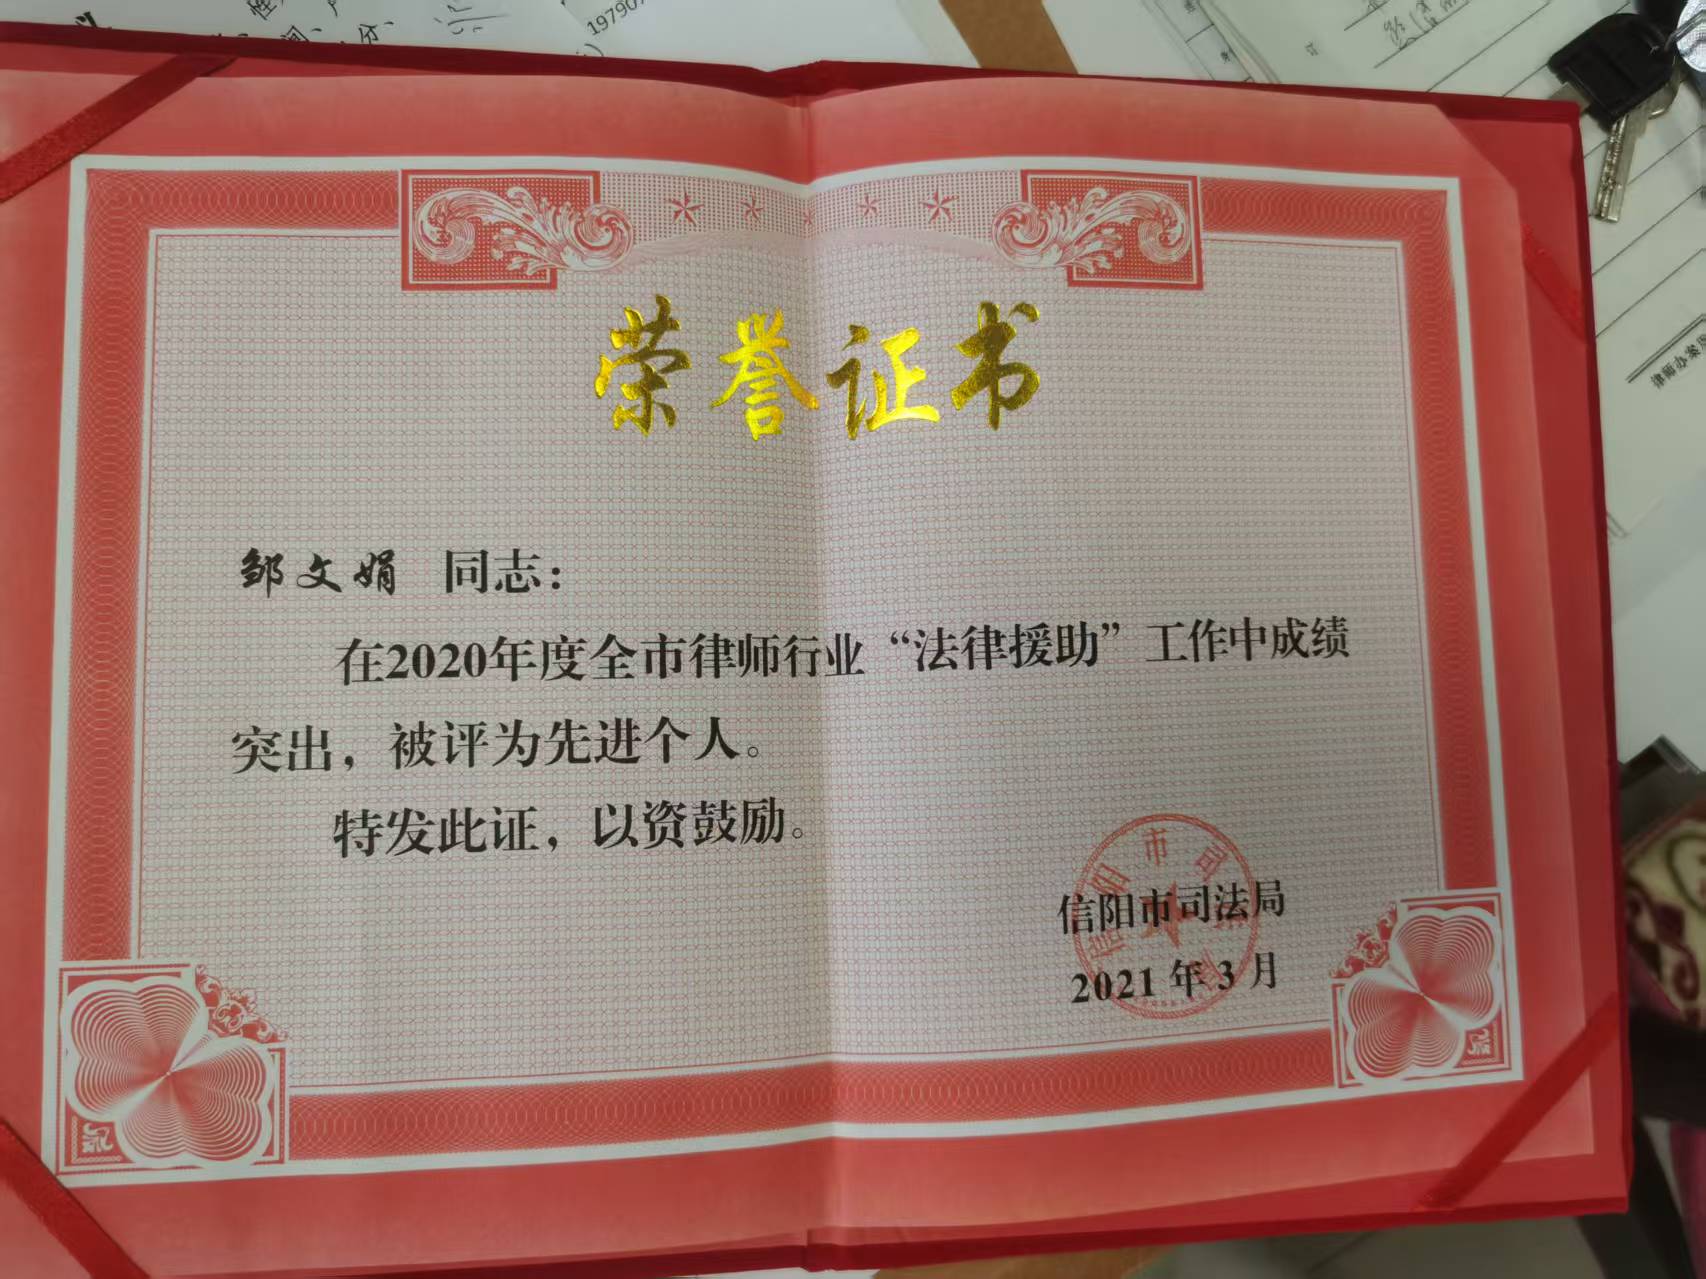 荣誉证书
邹文娟 同志：
在2020年度全市律师行业“法律援助”工作中成绩
突出，被评为先进个人。
特发此证，以资鼓励。
信阳市司法局
2021 年 3 月
信阳市司法局
19790
律师办案